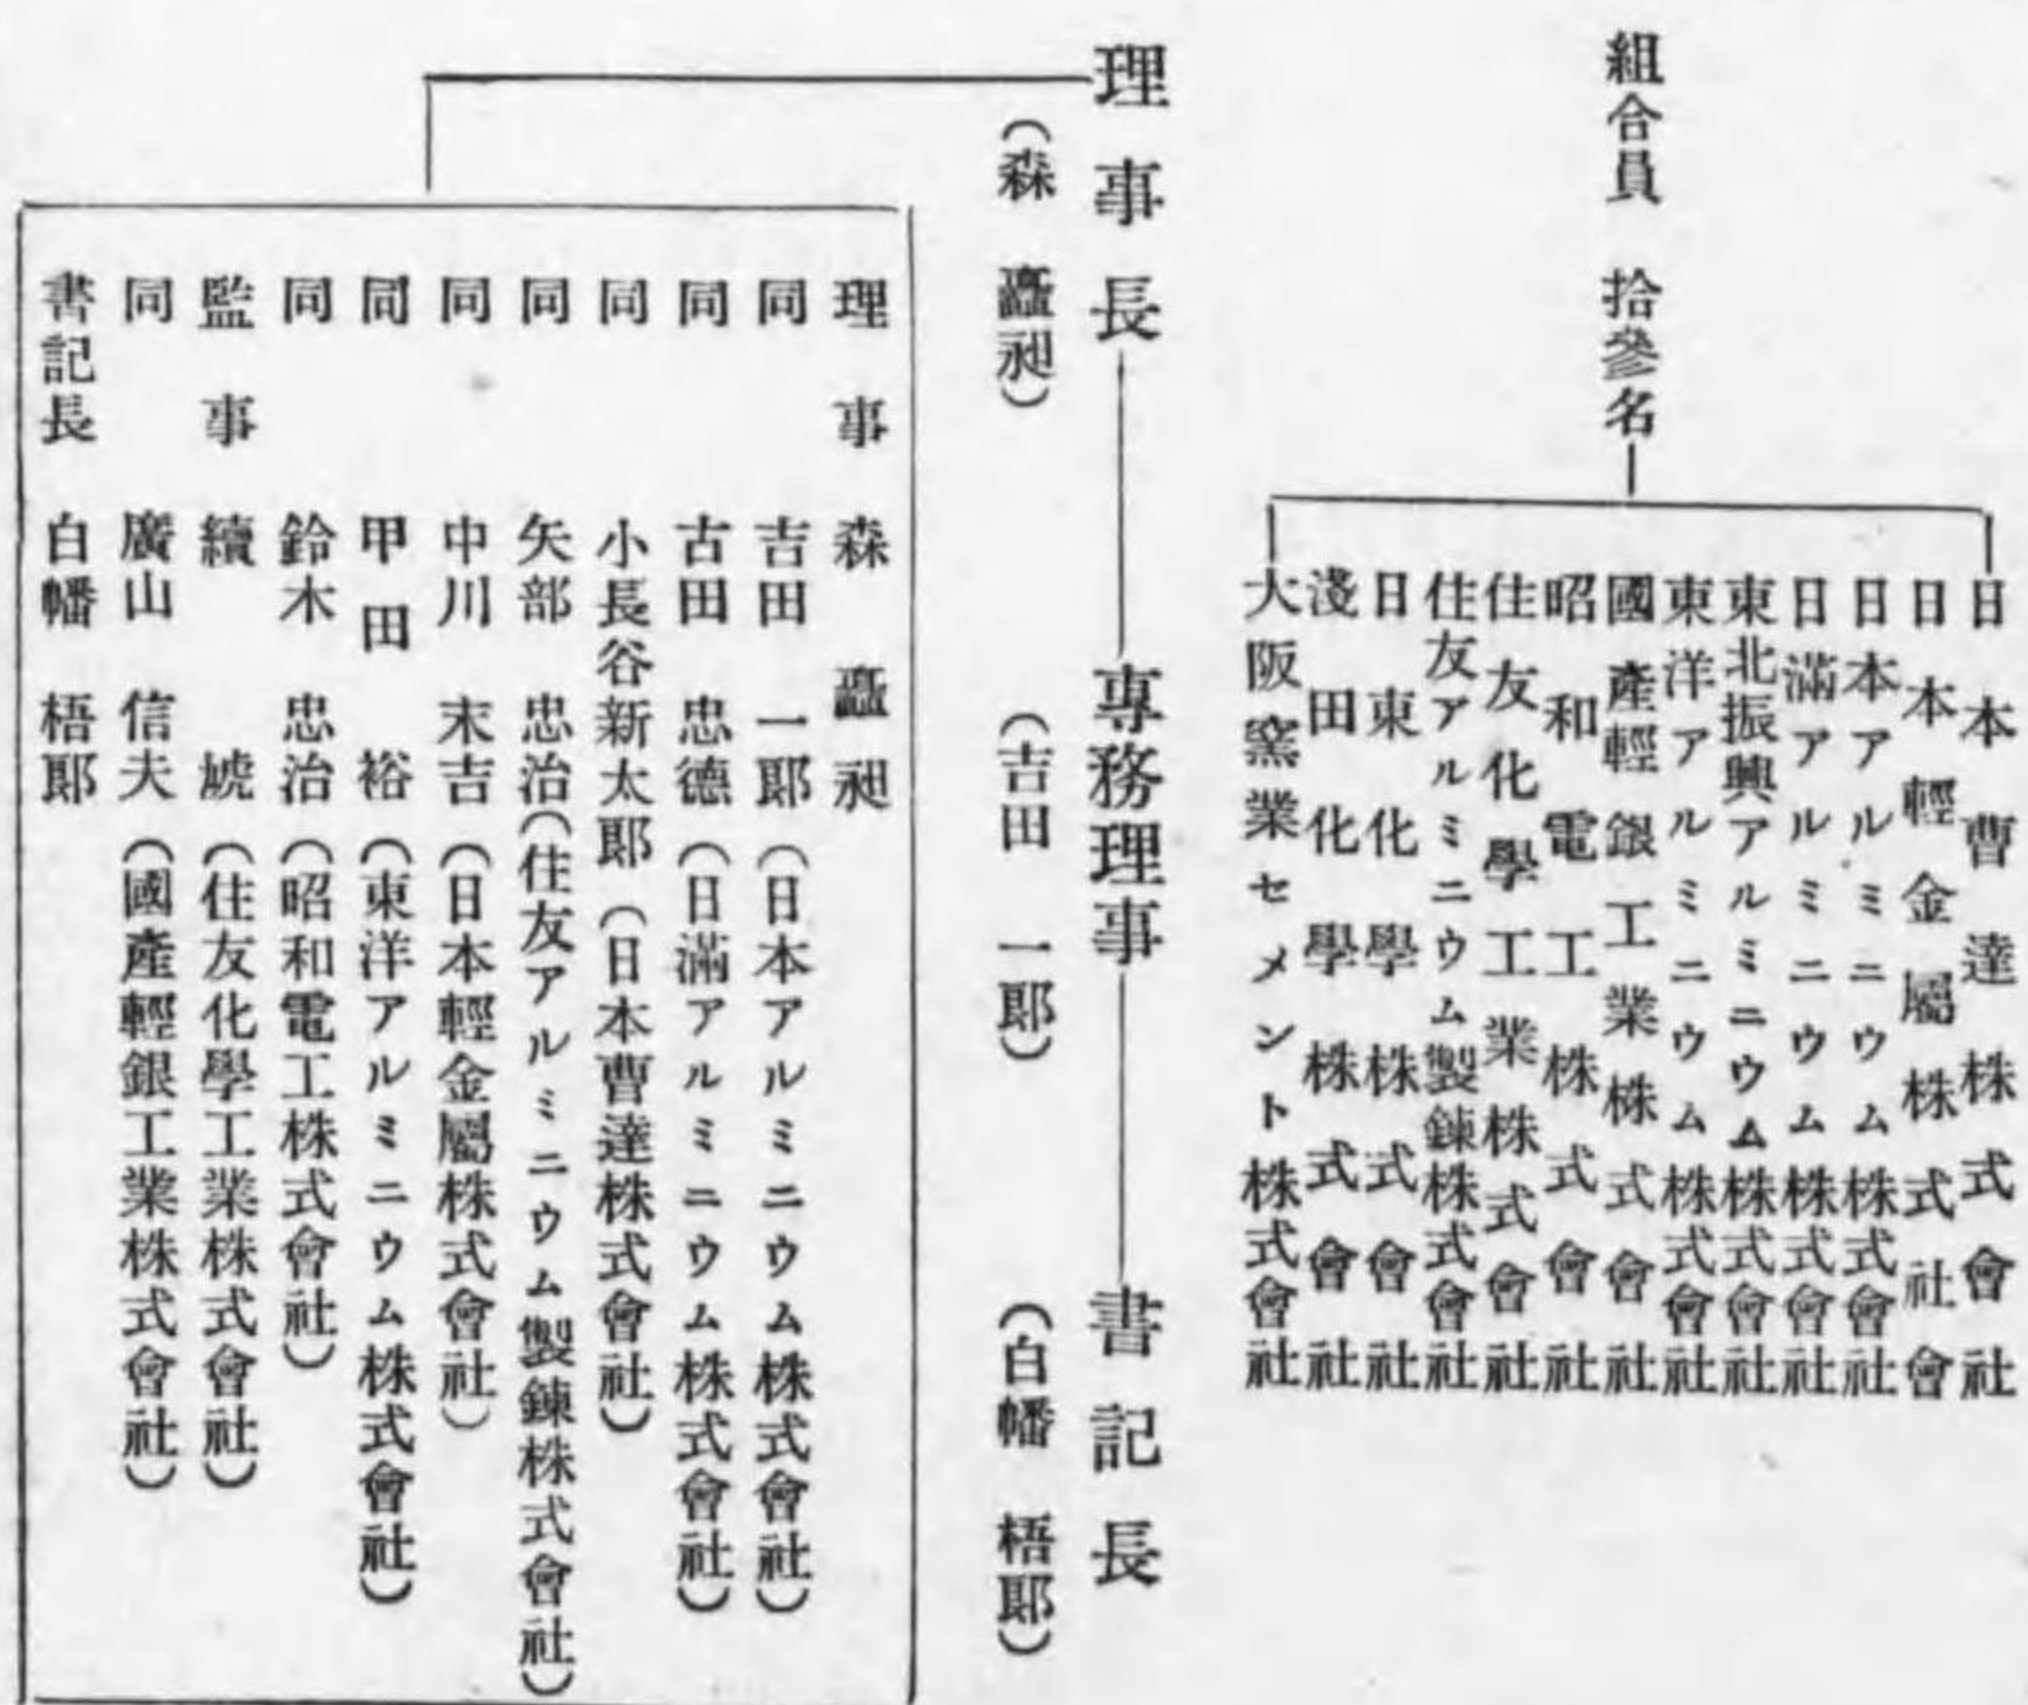 組合員 拾參名
日本曹達株式會社
日本輕金屬株式社會
日本アルミニウム株式會社
日滿アルミニウム株式會社
東北振興アルミニウム株式會社
東洋アルミニウム株式會社
國產輕銀工業株式會社
昭和電工株式會社
住友化學工業株式會社
住友アルミニウム製鍊株式會社
日東化學株式會社
淺田化學株式會社
大阪窯業セメント株式會社
理事長 專務理事 書記長
(森 矗昶) (吉田 一郞) (白幡 梧郞)
理事 森 矗昶
同 吉田 一郞 (日本アルミニウム株式會社)
同 古田 忠德 (日滿アルミニウム株式會社)
同 小長谷新太郞 (日本曹達株式會社)
同 矢部 忠治 (住友アルミニウム製鍊株式會社)
同 中川 末吉 (日本輕金屬株式會社)
同 甲田 裕 (東洋アルミニウム株式會社)
同 鈴木 忠治 (昭和電工株式會社)
監事 續 (住友化學工業株式會社)
同 廣山 信夫 (國產輕銀工業株式會社)
書記長 白幡 梧郞